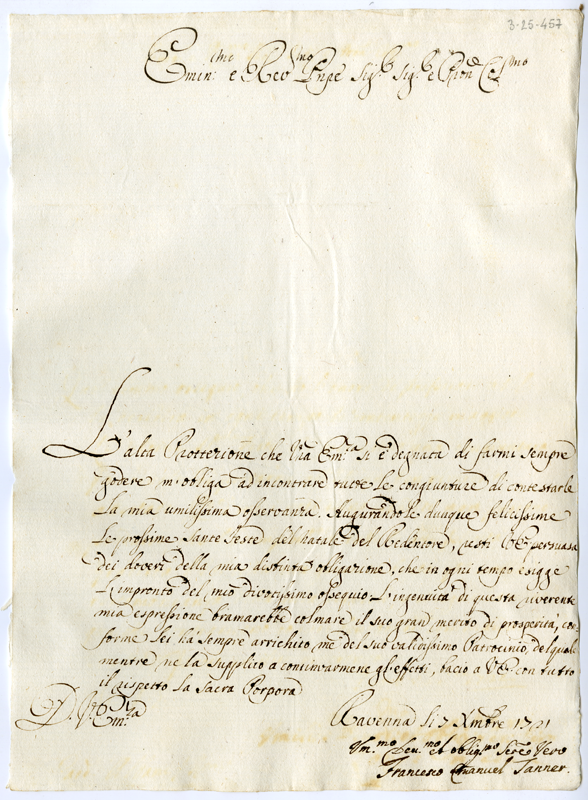 3-25-457
Emin.mo e Rev.mo Pnpe Sig.r Sig.r e Pron Col.mo
L'alta Protterione che Vra Em.a si è degnata di farmi sempre
godere m'obliga ad incontrare tutte le congiunture di contestarle
la mia umilissima osservanza. Augurandole dunque felicissime
le prossime Sante Feste del Natale del Redentore, resti VE persuasa
dei doveri della mia distinta obligazione, che in ogni tempo esigge
l'impronto del mio divotissimo ossequio. L'ingenuità di questa riverente
mia espressione bramarebbe colmare il suo gran merito di prosperità, con
forme Lei hà sempre arrichito me del suo validissimo Patrocinio, del quale
mentre ne la supplico a continuarmene gl'effetti, bacio a VE con tutto
il rispetto la Sacra Porpora
D. V. Em.za
Ravenna li 7 Xmbre 1721
Um.mo Dev.mo et oblig.mo Serv.e Vero
Francesco Emanuel Tanner.